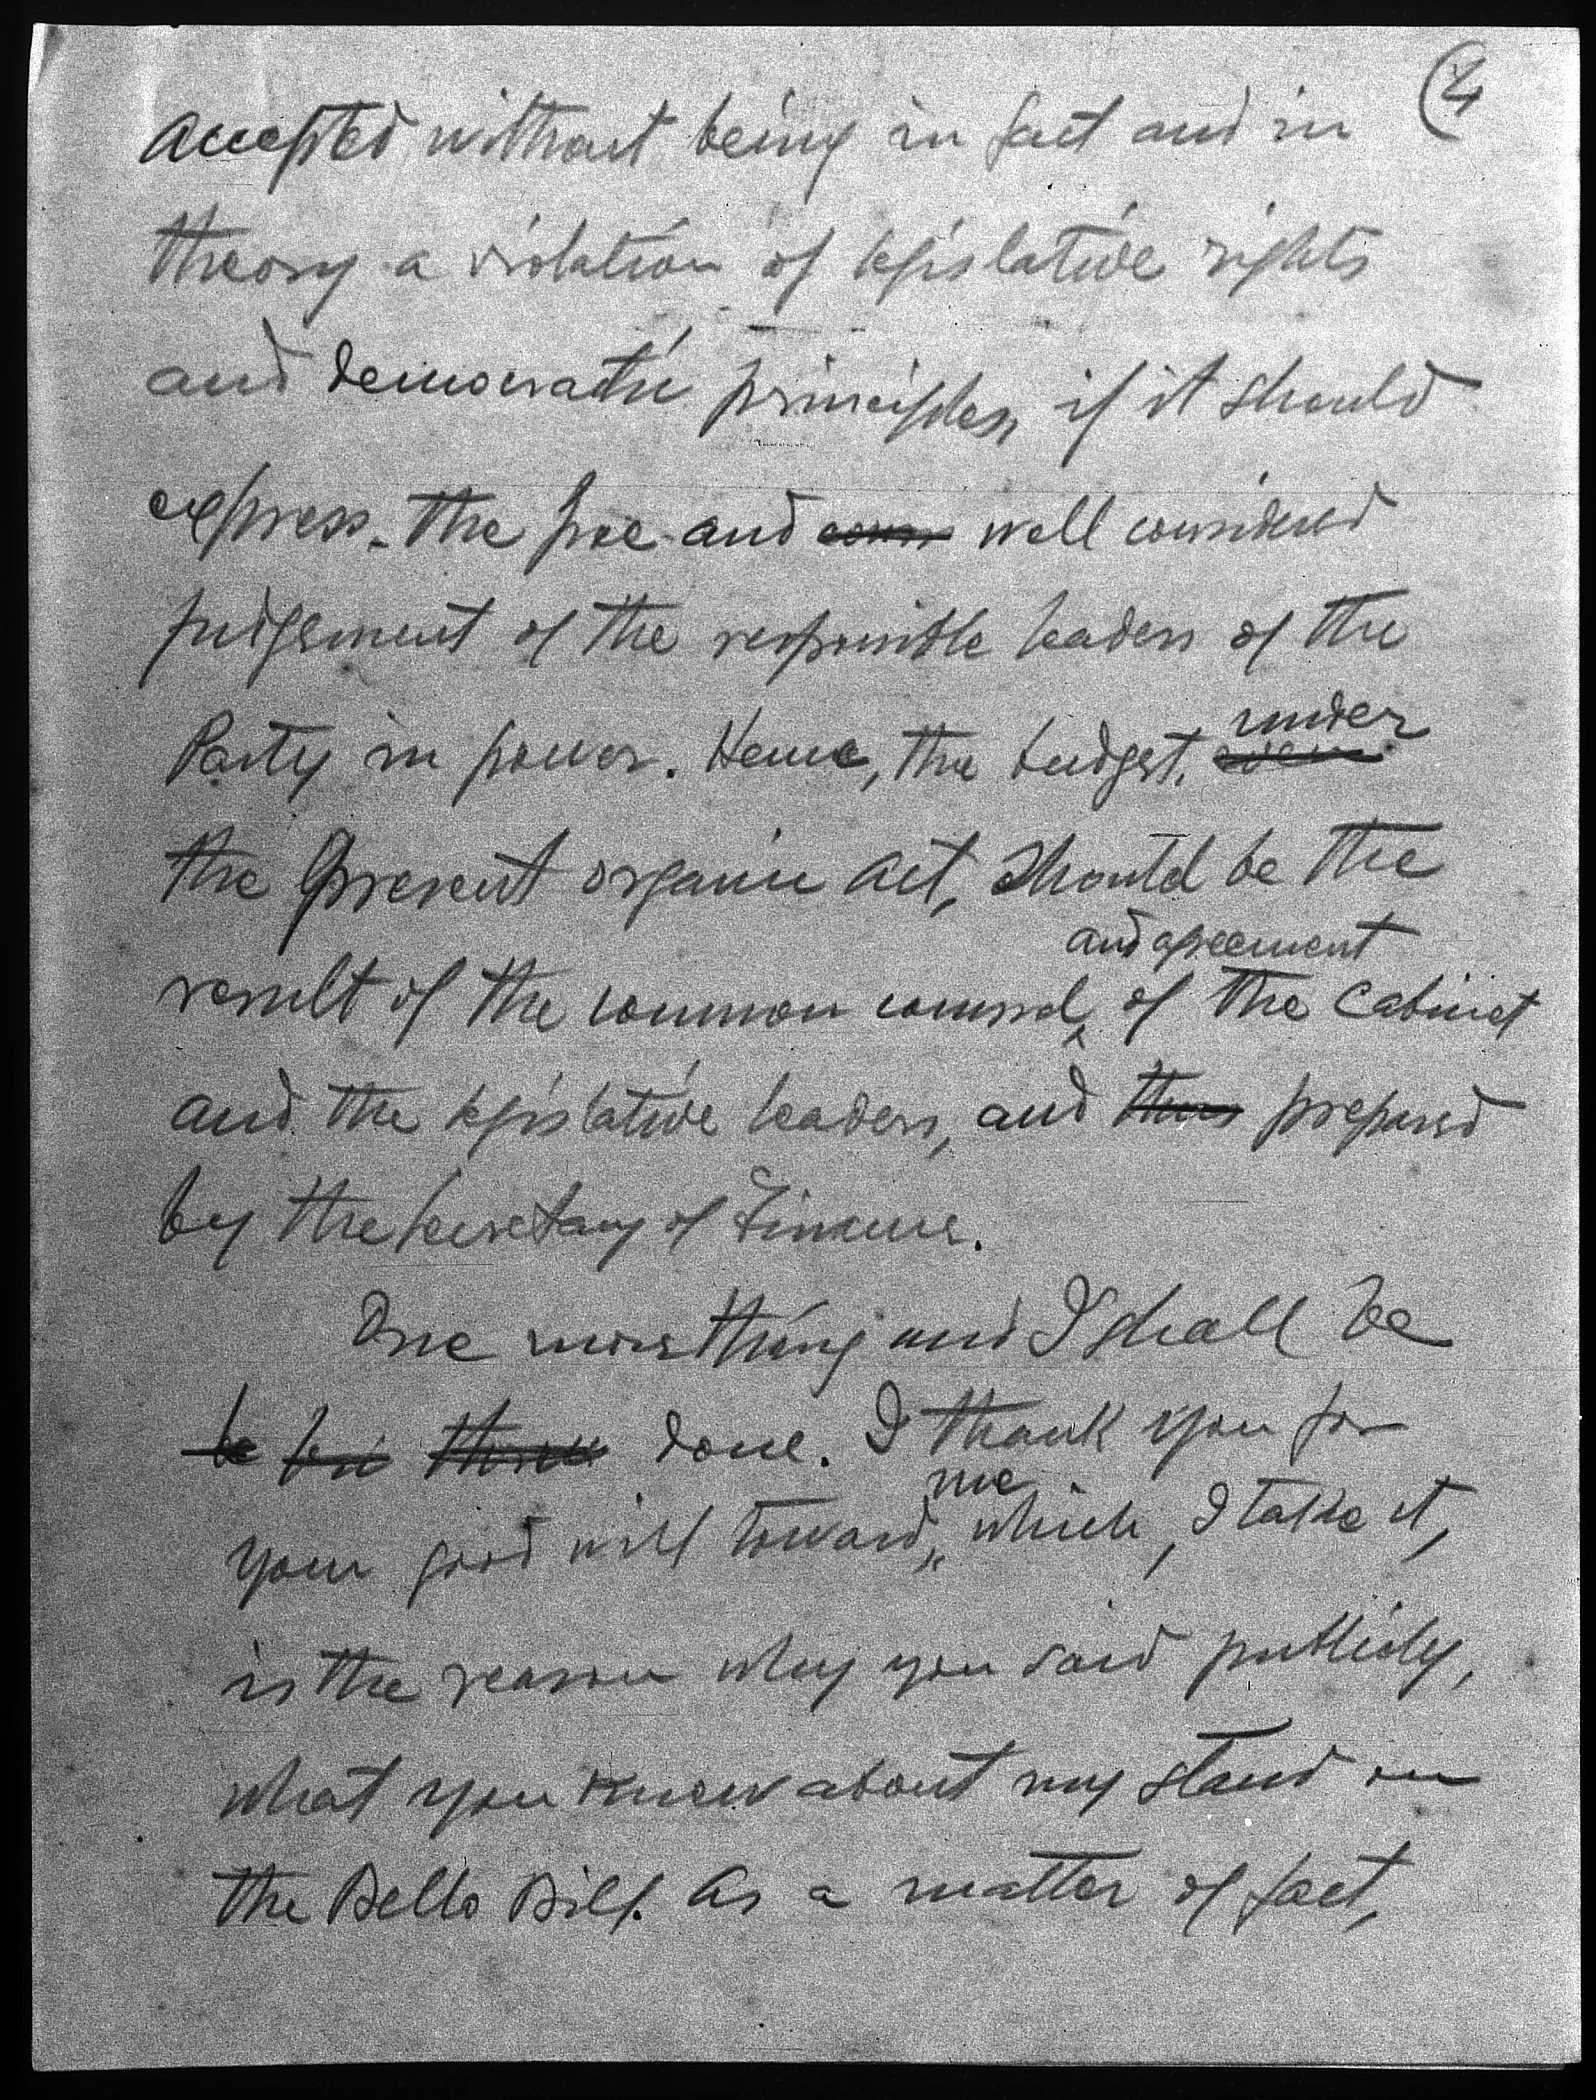 4
accepted without being in fact and in
theory a violation of legislative rights
and democratic principles, if it should
express the free and well considered
judgement of the responsible leaders of the
under
Party in power. Hence, the budget,
the present organic act, should be the
and agreement
result of the common counsel of the Cabinet
and the legislative leaders, and thus prepared
by the Secretary of Finance.
One more thing and I shall be
be done. I thank you for
me
your good will toward, which, I take it,
is the reason why you said publicly,
what you know about my stand on
the Bello Bill. As a matter of fact,